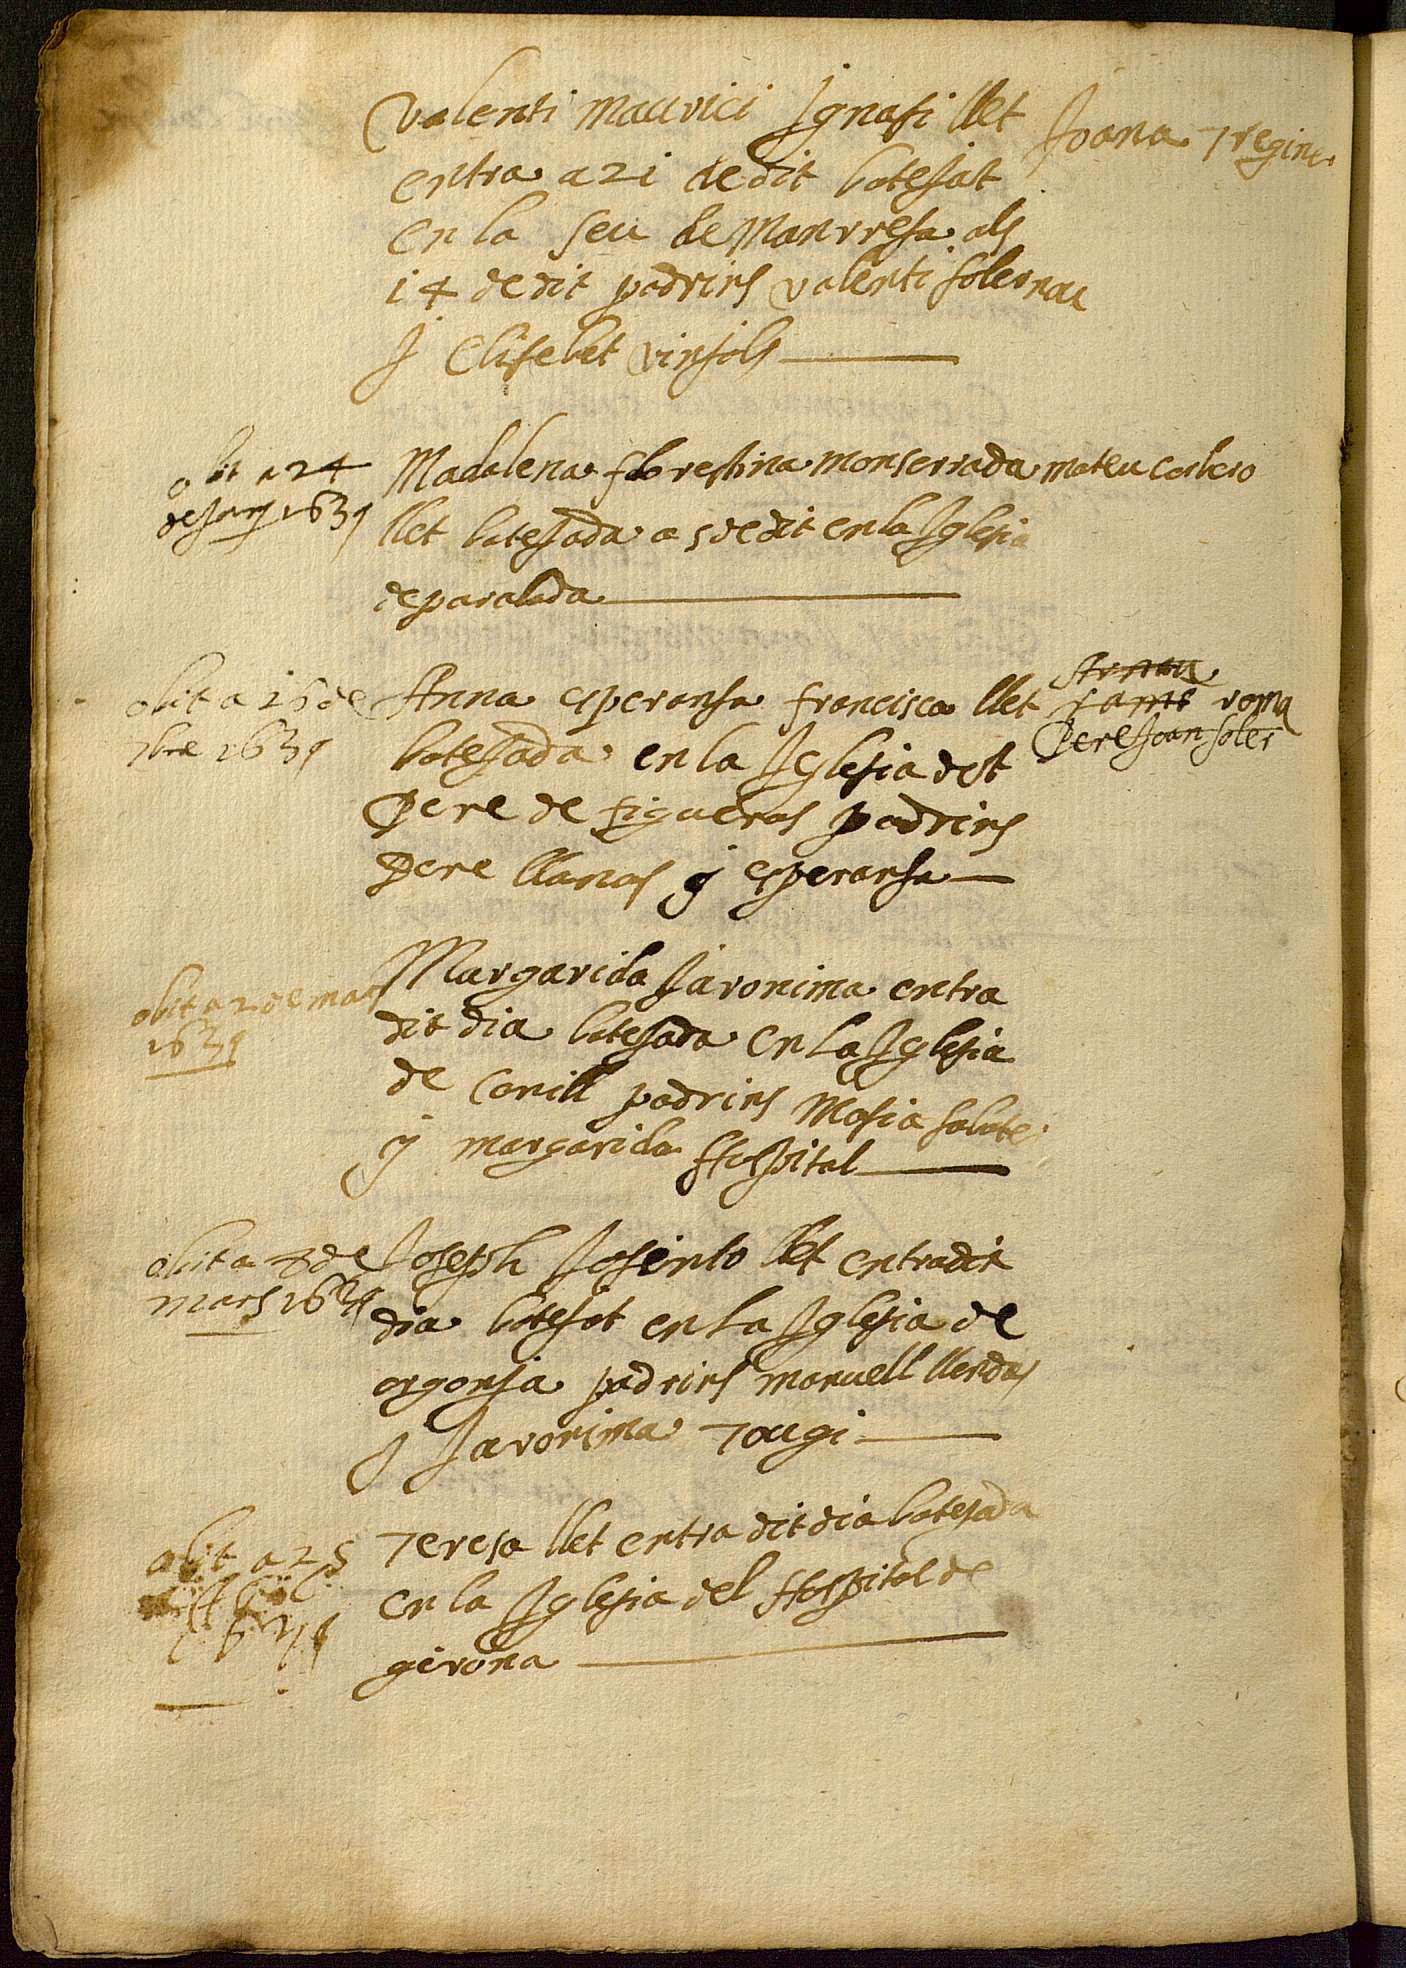 Valenti Maurici Ignasi llet
Joana Tregine
entra a 21 de dit batejat
en la seu de Manrresa als
14 de dit padrins valenti solernau
j Elisebet vinjols
obit a 24
de juny 1639
Madalena florestina monserrada
mateu corbero
llet batejada a 5 de dit en la Iglesia
de paralada
obit a 16 de
7bre 1639
Anna esperansa francisca llet
Arnau
roma
Pere Joan soler
batejada en la Iglesia de st
Pere de figueras padrins
Pere llanas y esperansa
obit a 2 de mars
1639
Margarida Jaronima entra
dit dia batejada en la Iglesia
de Conill padrins Masia sabate
y margarida Hospital
obit a de
mars 1639
Joseph Josinto llet entra dit
dia batejat en la Iglesia de
orgonja padrins manuell llerdas
j Jaronima Tougi
obit a 25
Teresa llet entra dit dia batejada
en la Iglesia del Hospital de
girona